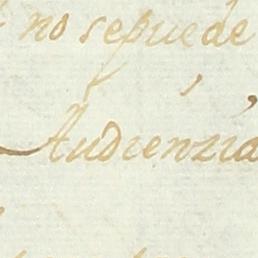 no sepuede
Audienzia